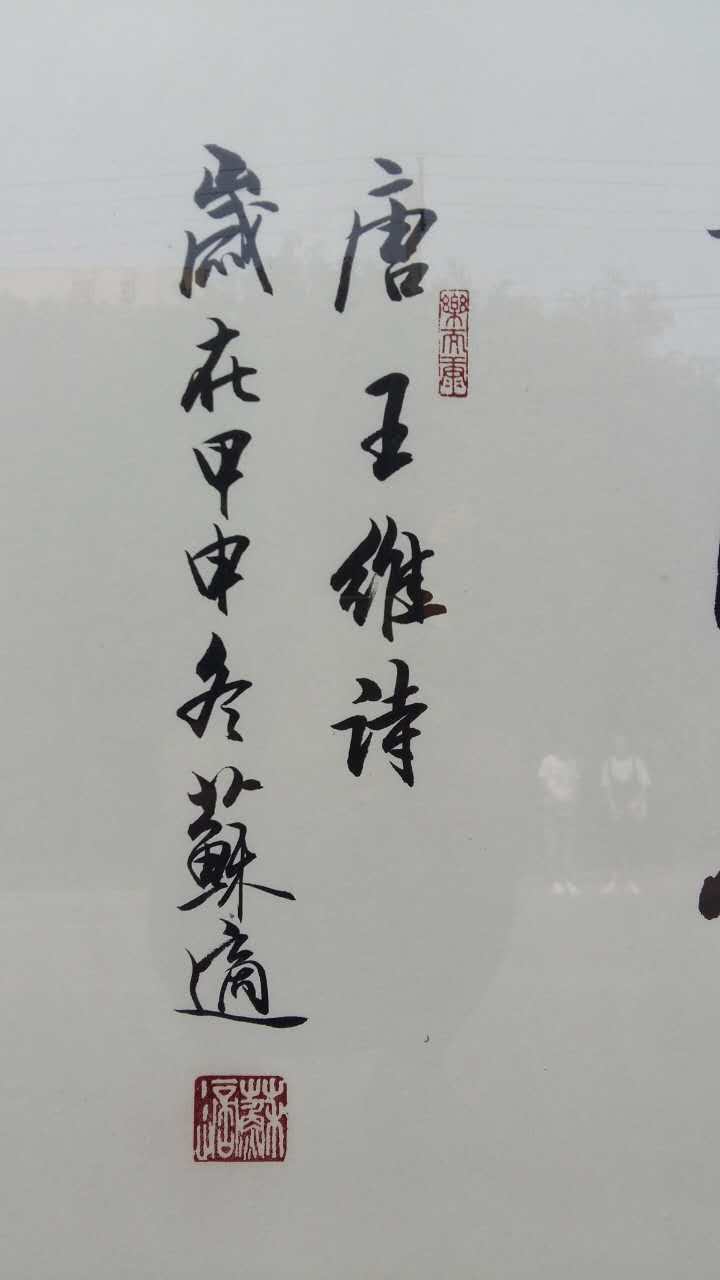 唐王维诗
歲在甲申冬蘇適
蘇適